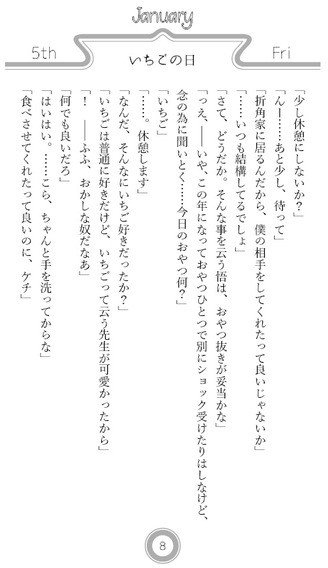 January
5th
いちごの日
Fri
「少し休憩にしないか?」
「んー……あと少し、待って」
「折角家に居るんだから、僕の相手をしてくれたって良いじゃないか」
「……いつも結構してるでしょ」
「さて、どうだか。そんな事を云う悟は、おやつ抜きが妥当かな」
「っえ、――いや、この年になっておやつひとつで別にショック受けたりはしなけど、
念の為に聞いとく……今日のおやつ何?」
「いちご」
「……。休憩します」
「なんだ、そんなにいちご好きだったか?」
「いちごは普通に好きだけど、いちごって云う先生が可愛かったから」
「! ――ふふ、おかしな奴だなあ」
「何でも良いだろ」
「はいはい。……こら、ちゃんと手を洗ってからな」
「食べさせてくれたって良いのに、ケチ」
8